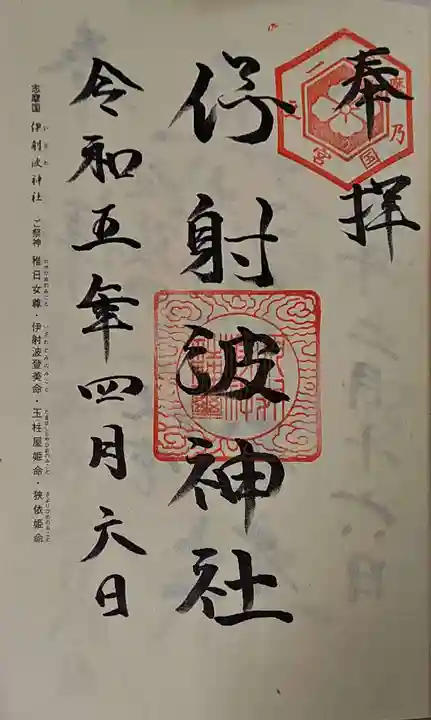 奉拝
一之宮
伊射波神社
令和五年四月六日
志摩国 伊射波神社 ご祭神 稚日女尊・伊射波登美命・玉柱屋姫命・狭依姫命